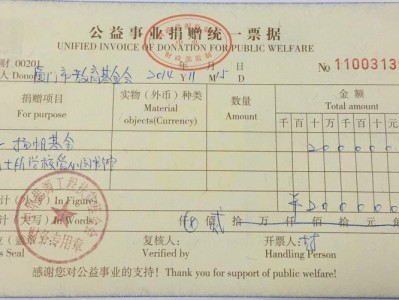 公益事业捐赠统一票据
UNIFIED INVOICE OF DONATION FOR PUBLIC WELFARE
财 00201
人 Dono 厦门市教育基金会 2014 Y 11 M 15 D № 1100313
捐赠项目 实物（外币）种类 数量 金额
For purpose Material objects(Currency) Amount Total amount
千 百 十 万 千 百 十 元
扬帆基金 200000
计（小写）In Figures ¥200000
计（大写）In Words 仟 佰 贰 拾 万 仟 佰 拾 元 角
财务专用章
位（盖 复核人： 开票人：
s Seal Verified by Handling Person
感谢您对公益事业的支持！Thank you for support of public welfare!